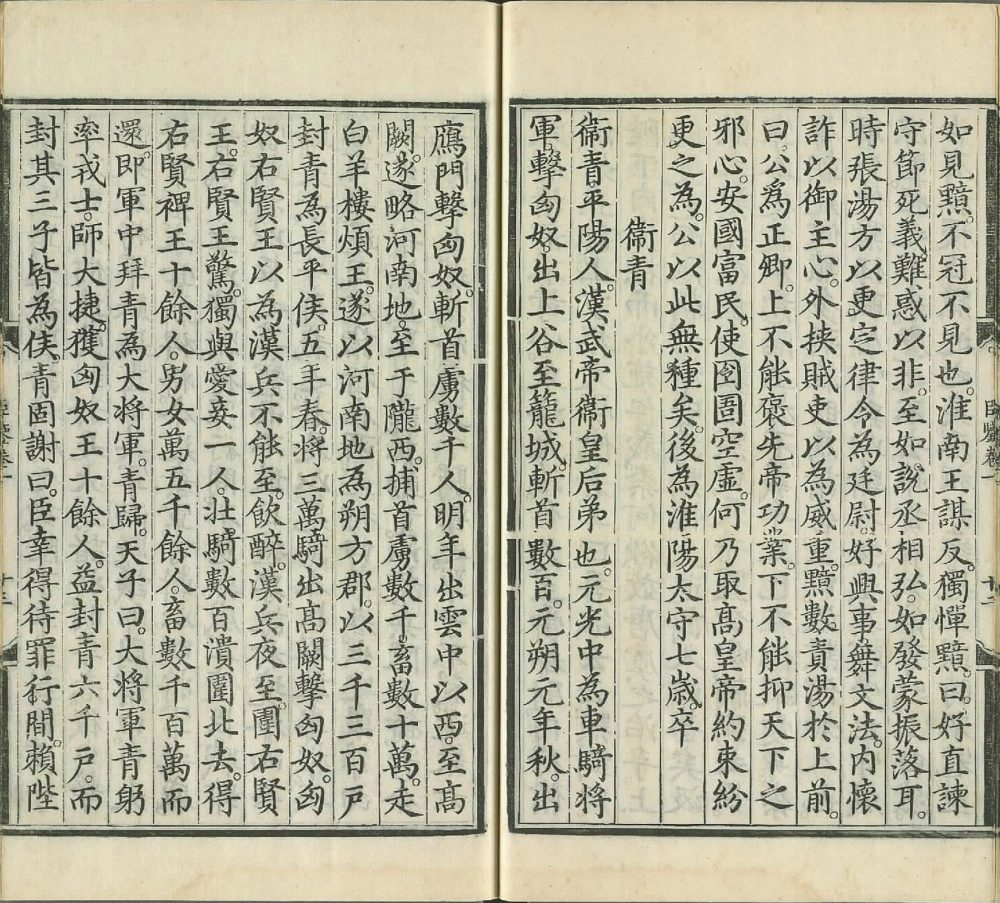 如見黯。不冠不見也。淮南王謀反。獨憚黯。曰。好直諫
守節死義。難惑以非。至如說丞相弘。如發蒙振落耳。
時張湯方以更定律令為廷尉。好興事舞文法。內懷
詐以御主心。外挾賊吏以為威重。黯數責湯於上前。
曰。公為正卿。上不能褒先帝功業。下不能抑天下之
邪心。安國富民。使囹圄空虛。何乃取高皇帝約束紛
更之為。公以此無種矣。後為淮陽太守七歲。卒
衞青
衞青平陽人。漢武帝衞皇后弟也。元光中為車騎將
軍。擊匈奴出上谷至籠城。斬首數百。元朔元年秋。出
鴈門擊匈奴。斬首虜數千人。明年出雲中以西。至高
闕。遂略河南地。至于隴西。捕首虜數千。畜數十萬。走
白羊樓煩王。遂以河南地為朔方郡。以三千三百戶
封青為長平侯。五年。春。將三萬騎出高闕擊匈奴。匈
奴右賢王以為漢兵不能至。飲醉。漢兵夜至。圍右賢
王。右賢王驚。獨與愛妾一人。壯騎數百潰圍北去。得
右賢裨王十餘人。男女萬五千餘人。畜數千百萬而
還。即軍中拜青為大將軍。青歸。天子曰。大將軍青躬
率戎士。師大捷。獲匈奴王十餘人。益封青六千戶。而
封其三子皆為侯。青固謝曰。臣幸得待罪行間。賴陛